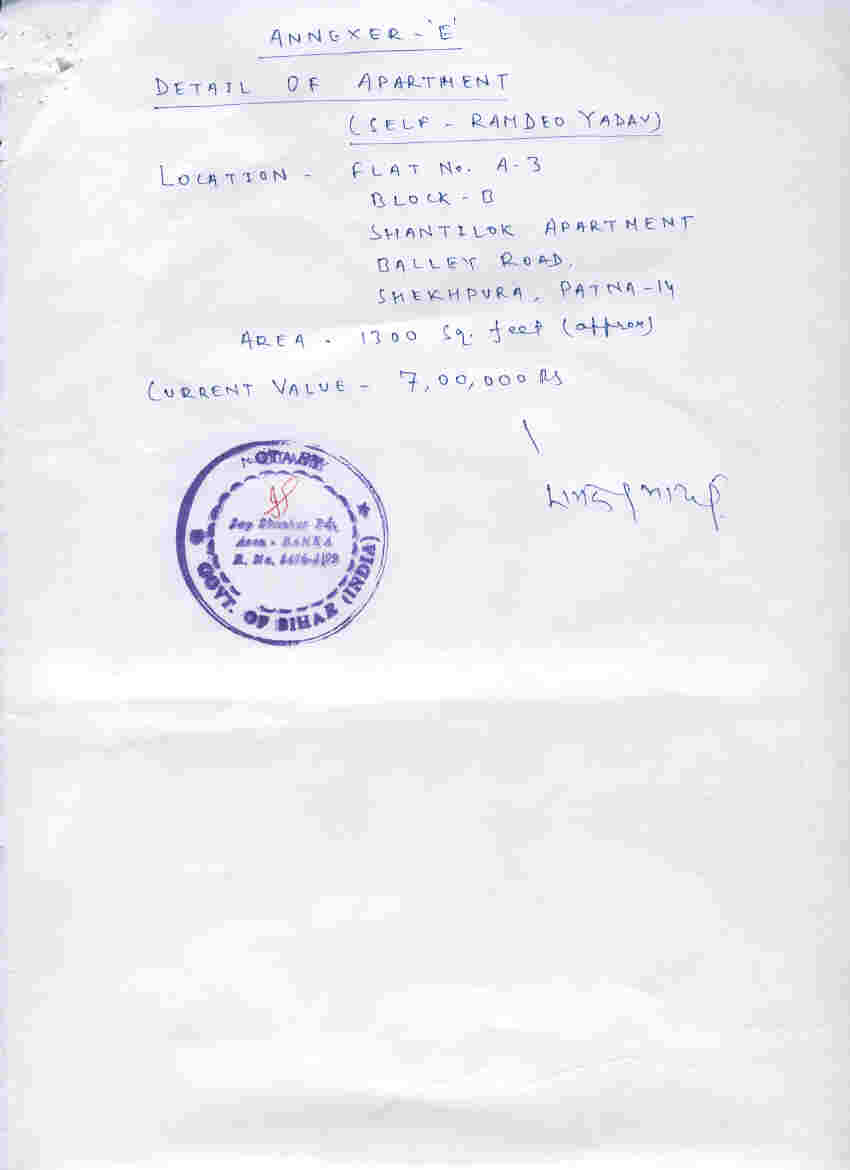 ANNGXER - 'E'
DETAIL OF APARTMENT
(SELF - RAMDEO YADAV)
LOCATION - FLAT No. A-3
BLOCK - B
SHANTILOK APARTMENT
BALLEY ROAD,
SHEKHPURA, PATNA-14
AREA - 1300 Sq. feet (approx)
CURRENT VALUE - 7,00,000 RS
NOTARY
Area - BANKA
R. No.
GOVT. OF BIHAR (INDIA)